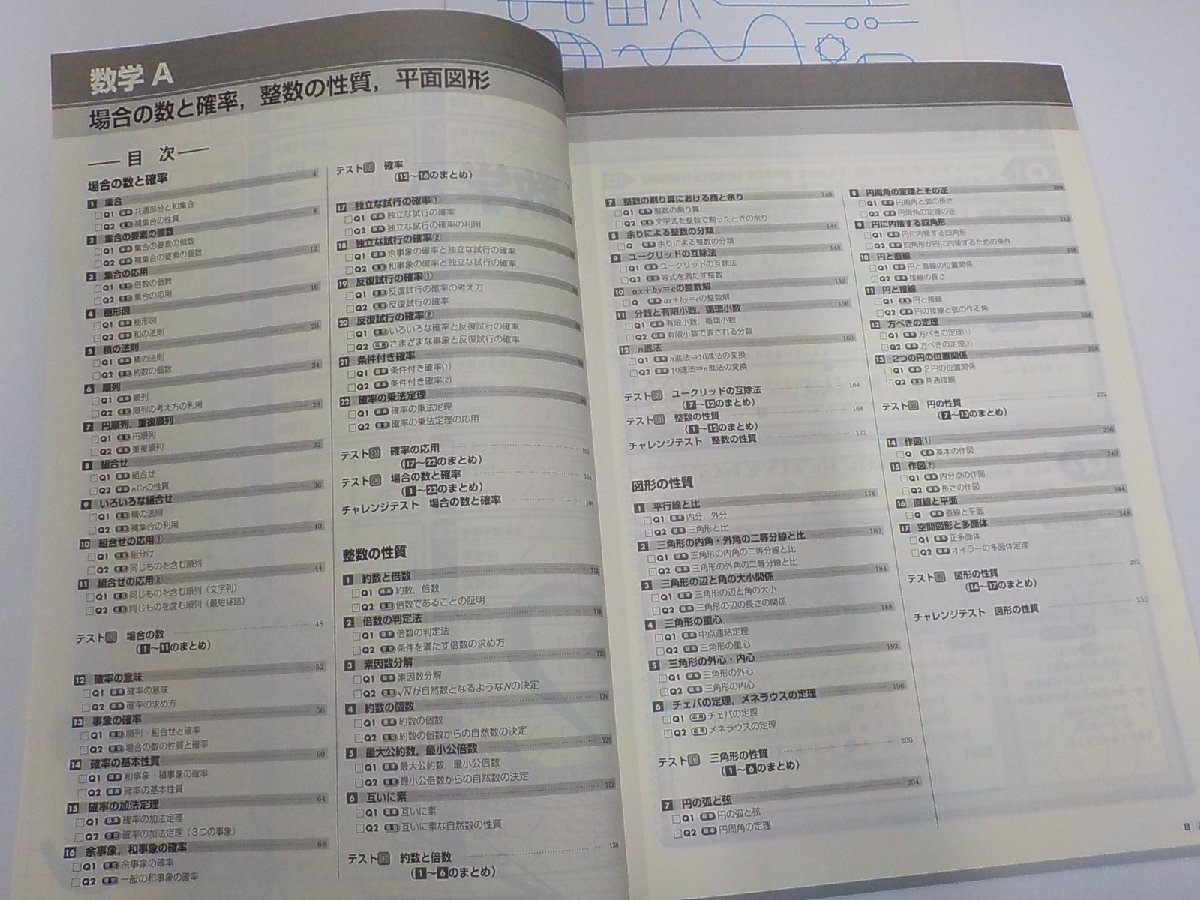 数学 A
場合の数と確率，整数の性質，平面図形
目 次
場合の数と確率
1 集合 4
Q1 共通部分と和集合
Q2 補集合の性質
2 集合の要素の個数 8
Q1 集合の要素の個数
Q2 補集合の要素の個数
3 集合の応用 12
Q1 倍数の個数
Q2 集合の応用
4 樹形図 16
Q1 樹形図
Q2 和の法則
5 積の法則 20
Q1 積の法則
Q2 約数の個数
6 順列 24
Q1 順列
Q2 順列の考え方の利用
7 円順列，重複順列 28
Q1 円順列
Q2 重複順列
8 組合せ 32
Q1 組合せ
Q2 nCrの性質
9 いろいろな組合せ 36
Q1 積の法則
Q2 補集合の利用
10 組合せの応用① 40
Q1 組分け
Q2 同じものを含む順列
11 組合せの応用② 44
Q1 同じものを含む順列（文字列）
Q2 同じものを含む順列（最短経路）
テスト 場合の数 48
(1〜11のまとめ)
12 確率の意味 52
Q1 確率の意味
Q2 確率の求め方
13 事象の確率 56
Q1 順列・組合せと確率
Q2 場合の数の性質と確率
14 確率の基本性質 60
Q1 和事象 積事象の確率
Q2 確率の基本性質
15 確率の加法定理 64
Q1 確率の加法定理
Q2 確率の加法定理（3つの事象）
16 余事象，和事象の確率 68
Q1 余事象の確率
Q2 一般の和事象の確率
テスト 確率
(12〜16のまとめ)
17 独立な試行の確率①
Q1 独立な試行の確率
Q2 独立な試行の確率の利用
18 独立な試行の確率②
Q1 余事象の確率と独立な試行の確率
Q2 和事象の確率と独立な試行の確率
19 反復試行の確率①
Q1 反復試行の確率の考え方
Q2 反復試行の確率
20 反復試行の確率②
Q1 いろいろな確率と反復試行の確率
Q2 さまざまな事象と反復試行の確率
21 条件付き確率
Q1 条件付き確率(1)
Q2 条件付き確率(2)
22 確率の乗法定理
Q1 確率の乗法定理
Q2 確率の乗法定理の応用
テスト 確率の応用
(17〜22のまとめ)
テスト 場合の数と確率
(1〜22のまとめ)
チャレンジテスト 場合の数と確率
整数の性質
1 約数と倍数
Q1 約数，倍数
Q2 倍数であることの証明
2 倍数の判定法
Q1 倍数の判定法
Q2 条件を満たす倍数の求め方
3 素因数分解
Q1 素因数分解
Q2 √Nが自然数となるようなNの決定
4 約数の個数 124
Q1 約数の個数
Q2 約数の個数からの自然数の決定
5 最大公約数，最小公倍数 128
Q1 最大公約数，最小公倍数
Q2 最小公倍数からの自然数の決定
6 互いに素 132
Q1 互いに素
Q2 互いに素な自然数の性質
テスト 約数と倍数 136
(1〜6のまとめ)
7 整数の割り算における商と余り 140
Q1 整数の割り算
Q2 文字式を整数で割ったときの余り
8 余りによる整数の分類 144
Q 余りによる整数の分類
9 ユークリッドの互除法 148
Q1 ユークリッドの互除法
Q2 等式を満たす整数
10 ax＋by＝cの整数解 152
Q ax＋by＝cの整数解
11 分数と有限小数，循環小数 156
Q1 有限小数，循環小数
Q2 有限小数で表される分数
12 n進法 160
Q1 n進法⇒10進法の変換
Q2 10進法⇒n進法の変換
テスト ユークリッドの互除法 164
(7〜12のまとめ)
テスト 整数の性質 168
(1〜12のまとめ)
チャレンジテスト 整数の性質 172
図形の性質
1 平行線と比 176
Q1 内分，外分
Q2 三角形と比
2 三角形の内角・外角の二等分線と比 180
Q1 三角形の内角の二等分線と比
Q2 三角形の外角の二等分線と比
3 三角形の辺と角の大小関係 184
Q1 三角形の辺と角の大小
Q2 三角形の辺の長さの関係
4 三角形の重心 188
Q1 中点連結定理
Q2 三角形の重心
5 三角形の外心・内心 192
Q1 三角形の外心
Q2 三角形の内心
6 チェバの定理，メネラウスの定理 196
Q1 チェバの定理
Q2 メネラウスの定理
テスト 三角形の性質 200
(1〜6のまとめ)
7 円の弧と弦 204
Q1 円の弧と弦
Q2 円周角の定理
8 円周角の定理とその逆 208
Q1 円周角と弧の長さ
Q2 円周角の定理の逆
9 円に内接する四角形 212
Q1 円に内接する四角形
Q2 四角形が円に内接するための条件
10 円と直線
Q1 円と直線の位置関係
Q2 接線の長さ
11 円と接線
Q1 円と接線
Q2 円の接線と弦の作る角
12 方べきの定理
Q1 方べきの定理(1)
Q2 方べきの定理
13 2つの円の位置関係
Q1 2円の位置関係
Q2 共通接線
テスト 円の性質
(7〜13のまとめ)
14 作図(1)
Q 基本の作図
15 作図 240
Q1 内分点の作図
Q2 長さの作図
16 直線と平面 244
Q 直線と平面
17 空間図形と多面体 248
Q1 正多面体
Q2 オイラーの多面体定理
テスト 図形の性質
(14〜17のまとめ)
チャレンジテスト 図形の性質